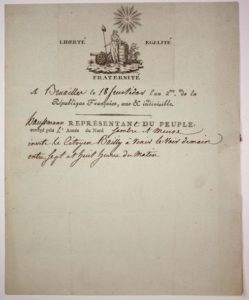 LIBERTÉ EGALITÉ
FRATERNITÉ
A Bruxelles le 18 fructidor l'an 2me. de la
République Française, une & indivisible.
Haussmann REPRÉSENTANT DU PEUPLE,
envoyé près l'Armée du Nord Sambre et Meuse
invite le Citoyen Bailly à venir le voir demain
entre sept et huit heures du matin